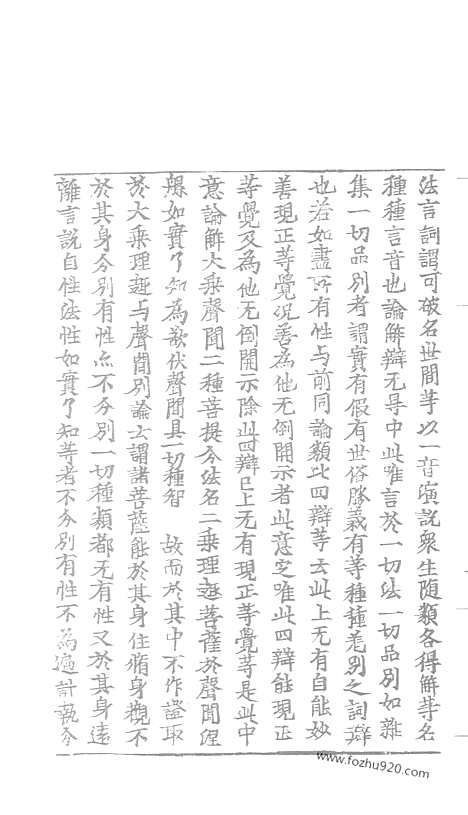 法言詞謂可破名世間等以一音演說衆生随類各得解等名
種種言音也論解辯无㝵中此唯言於一切法一切品別如雜
集一切品別者謂實有假有世俗勝義有等種種差別之詞辯
也若如盡所有性与前同論類此四辯等云此上无有自能妙
善現正等覺况善為他无倒開示者此意㝎唯此四辯能現正
等覺及為他无倒開示除此四辯已上无有現正等覺等是此中
意論解大乘聲聞二種菩提分法名二乘理趣菩薩於聲聞涅
槃如實了知為歡伏聲聞具一切種智　故而於其中不作證取
於大乘理趣与聲聞別論云謂諸菩薩能於其身住循身觀不
於其身分別有性亦不分別一切種類都无有性又於其身遠
離言說自性法性如實了知等者不分別有性不為遍計執今
www.fozhu920.com